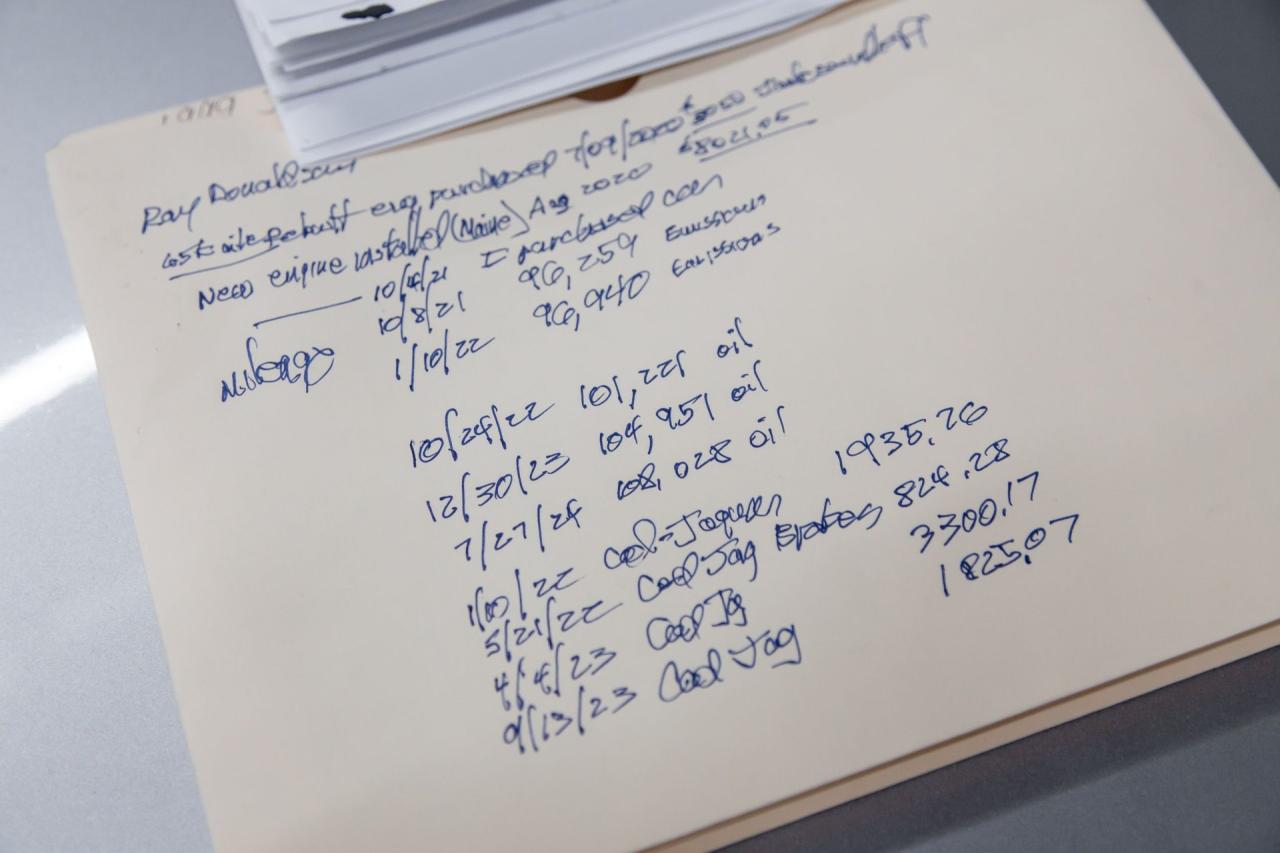 Ray Donaldson
eng purchased 7/09/2020 $
New engine installed (Maine) Aug 2020 $8021.05
10/4/21 I purchased car
Mileage 10/8/21 96,259 Emissions
1/10/22 96,940 Emissions
10/24/22 101,221 oil
12/30/23 104,951 oil
7/27/24 108,028 oil
1/10/22 Cool-Jaguar 1935.26
5/21/22 Cool Jag Brakes 824.28
4/4/23 Cool Jg 3300.17
9/13/23 Cool Jag 1825.07